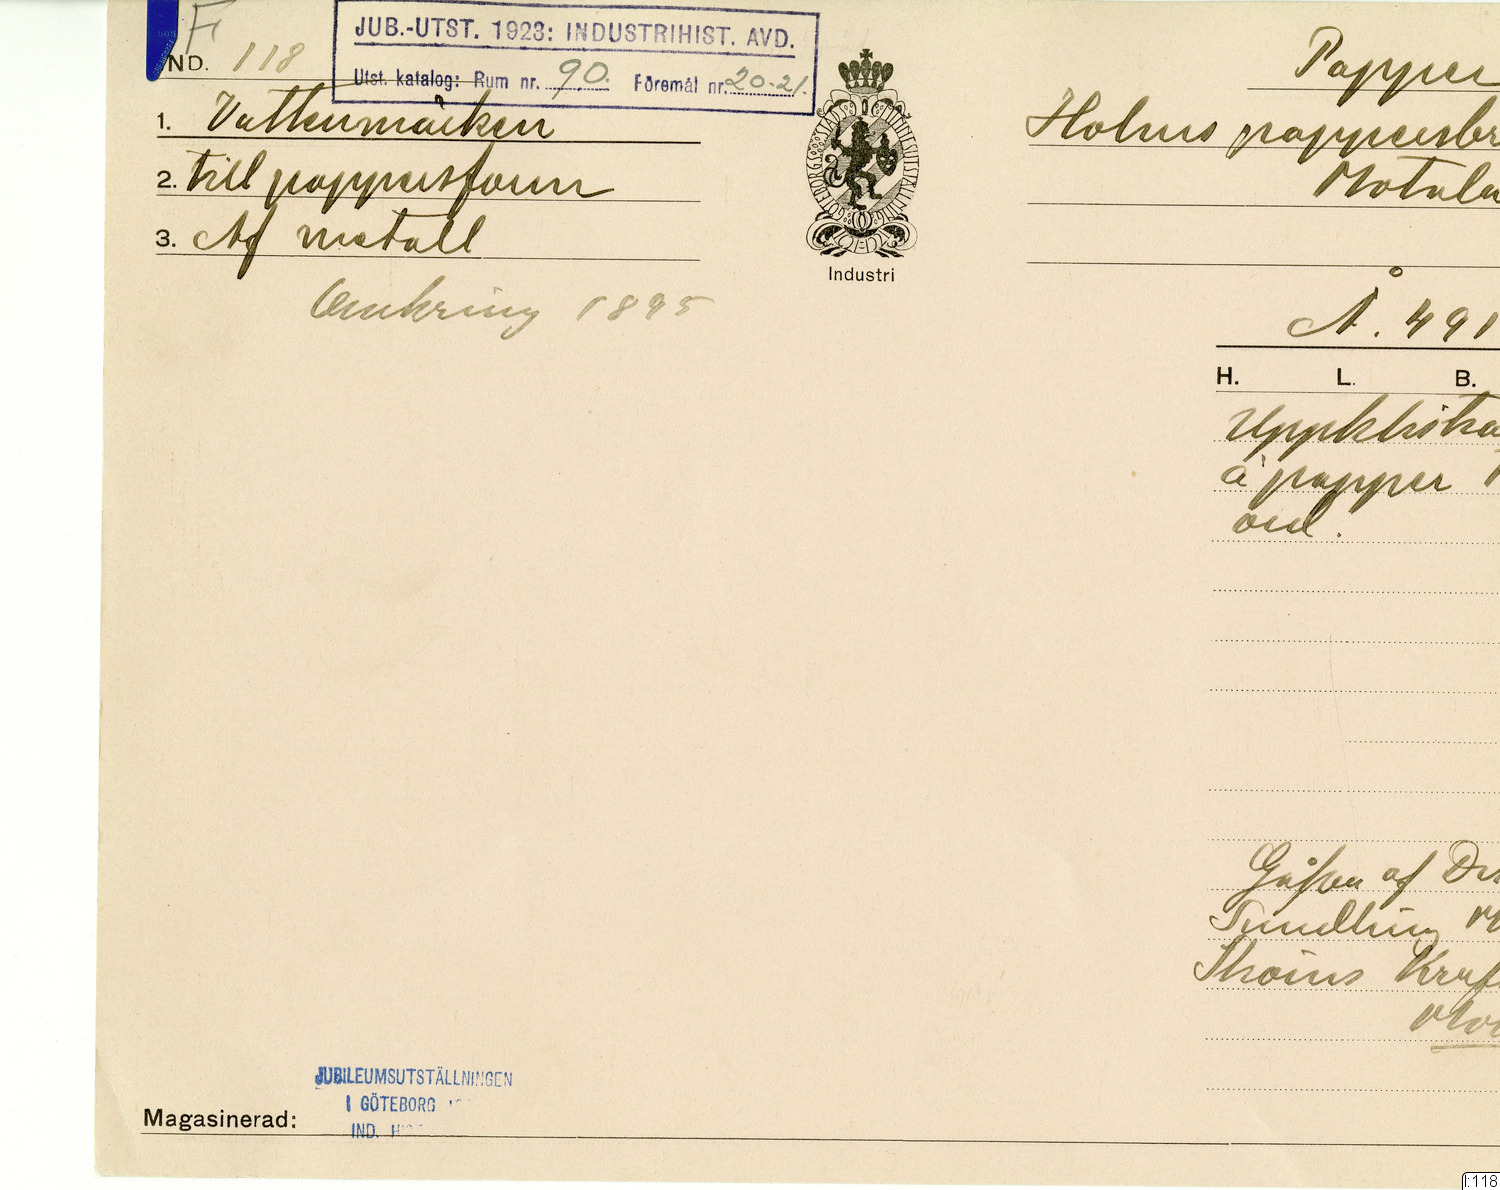 F
IND. 118
JUB.-UTST. 1923: INDUSTRIHIST. AVD.
Utst. katalog: Rum nr. 90. Föremål nr. 20-21.
1. Vattenmärken
2. till pappersform
3. Af metall
Omkring 1895
GÖTEBORGS STADS MINNESUTSTÄLLNING
Industri
Papper
Holms pappersbr
Motala
Å. 491
H. L. B.
Uppklistra
å papper
ord.
Gåfva af
Sundling
Skoins Kraf
Magasinerad:
JUBILEUMSUTSTÄLLNINGEN
I GÖTEBORG
IND.
I:118